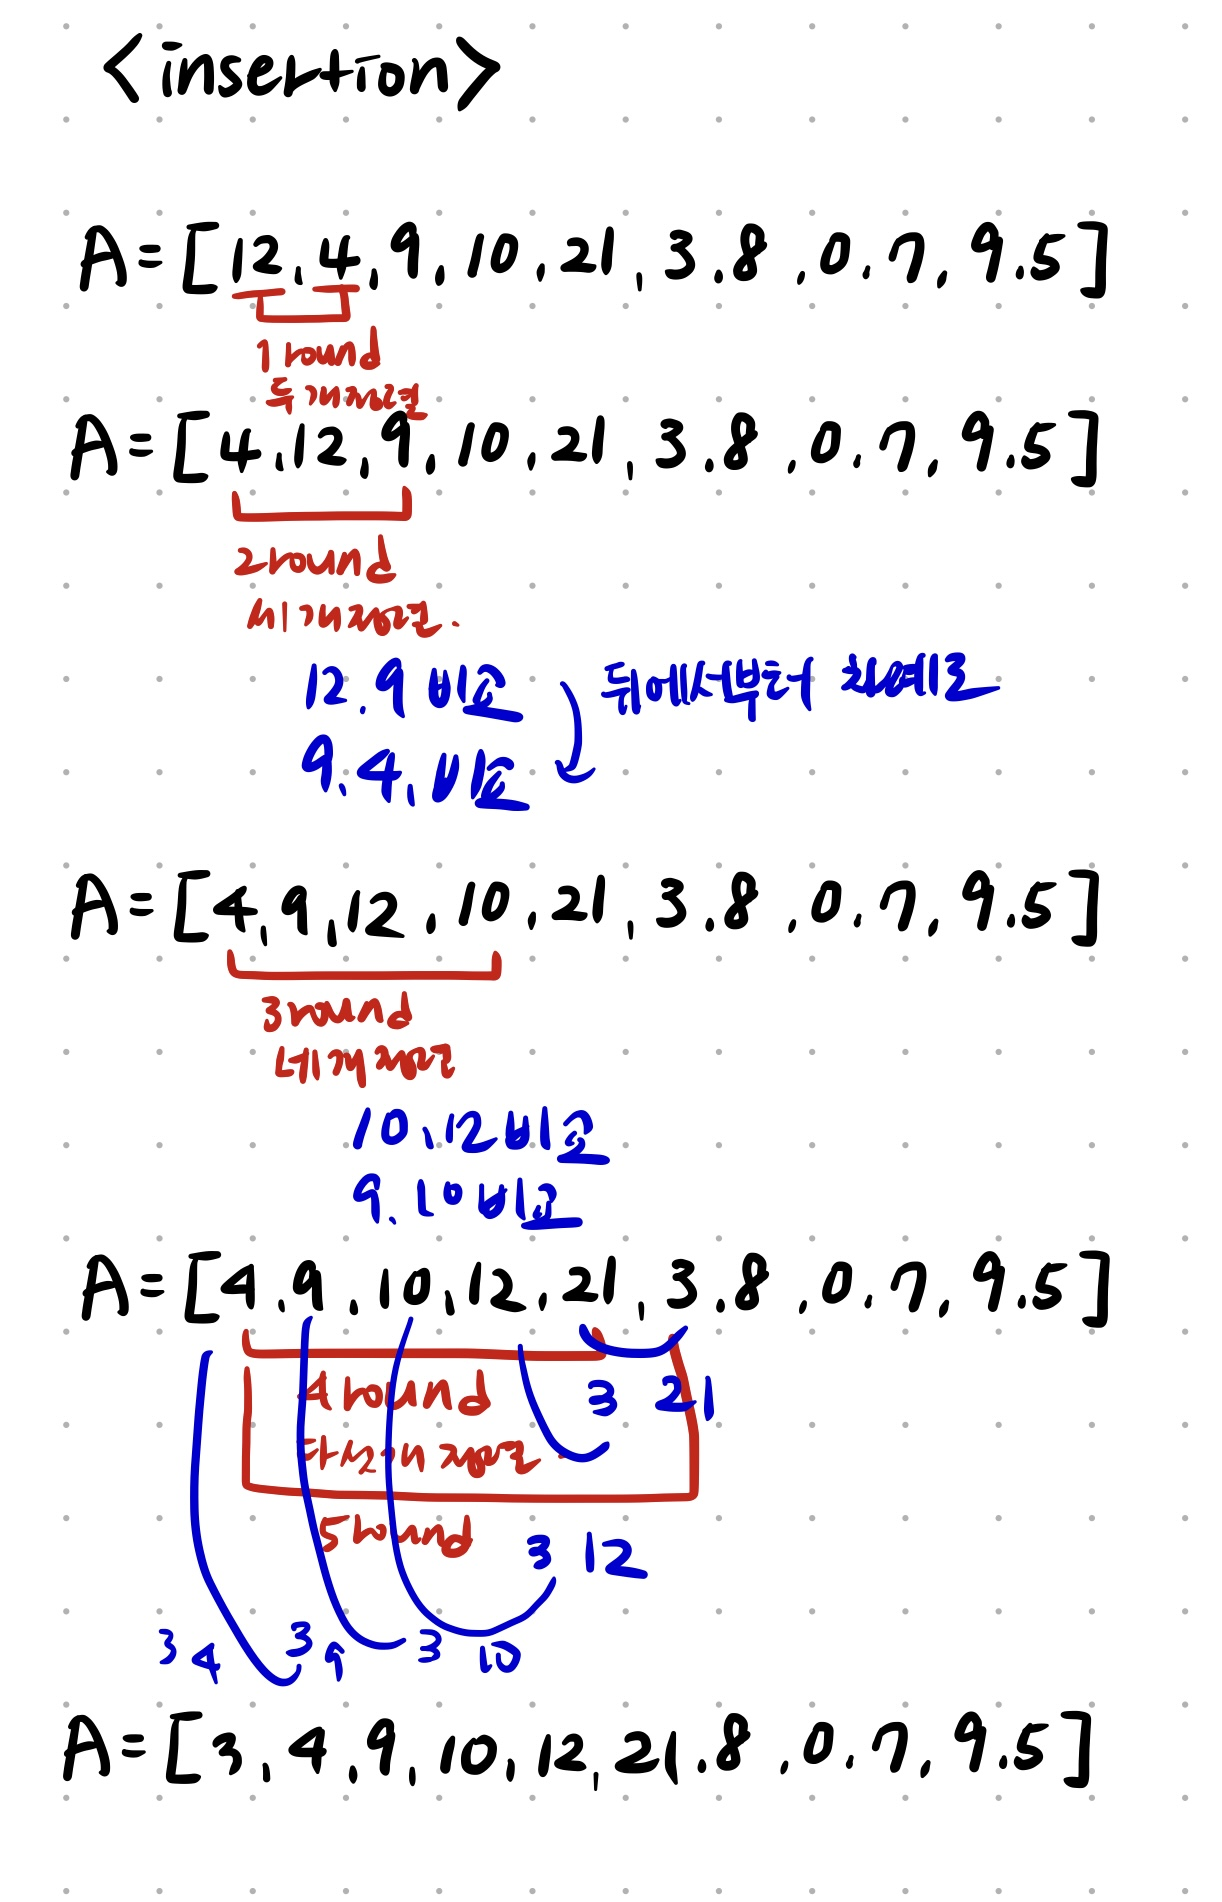 <insertion>
A=[12, 4, 9, 10, 21, 3.8, 0.7, 9.5]
1 round
두개정렬
A=[4, 12, 9, 10, 21, 3.8, 0.7, 9.5]
2round
세개정렬.
12. 9 비교 뒤에서부터 차례로
9. 4, 비교
A=[4, 9, 12, 10, 21, 3.8, 0.7, 9.5]
3round
네개정렬
10, 12 비교
9. 10 비교
A=[4, 9, 10, 12, 21, 3.8, 0.7, 9.5]
4round 3 21
다섯개 정렬
5round 3 12
3 4 3 9 3 10
A=[3, 4, 9, 10, 12, 21.8, 0.7, 9.5]